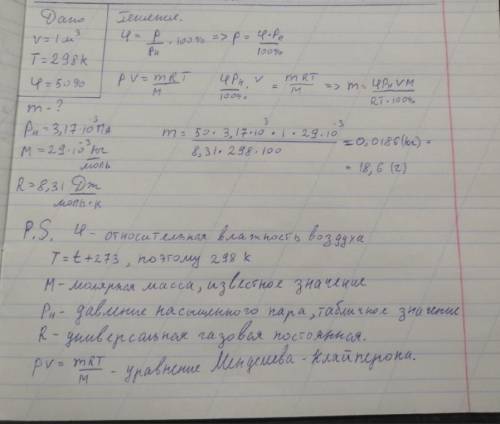 Дано
V = 1 м³
T = 298 k
φ = 50%
m - ?
Pн = 3,17·10³ Па
M = 29·10⁻³ кг/моль
R = 8,31 Дж/моль·к
Решение.
φ = P/Pн · 100% => P = φ·Pн/100%
PV = mRT/M φPн/100% · V = mRT/M => m = φPнVM/RT·100%
m = 50·3,17·10³·1·29·10⁻³/8,31·298·100 = 0,0186 (кг) =
= 18,6 (г)
P.S. φ - относительная влажность воздуха
T = t + 273, поэтому 298 k
M - молярная масса, известное значение
Pн - давление насыщенного пара, табличное значение
R - универсальная газовая постоянная.
PV = mRT/M - уравнение Менделеева - Клайперона.